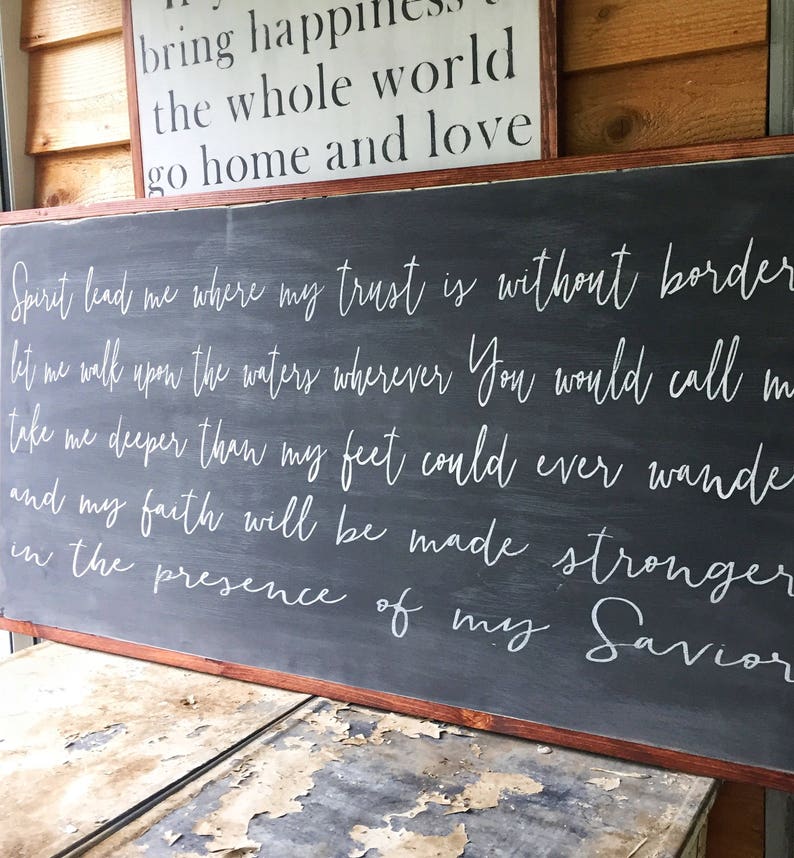 bring happiness
the whole world
go home and love
Spirit lead me where my trust is without border
let me walk upon the waters wherever You would call m
take me deeper than my feet could ever wande
and my faith will be made stronger
in the presence of my Savior